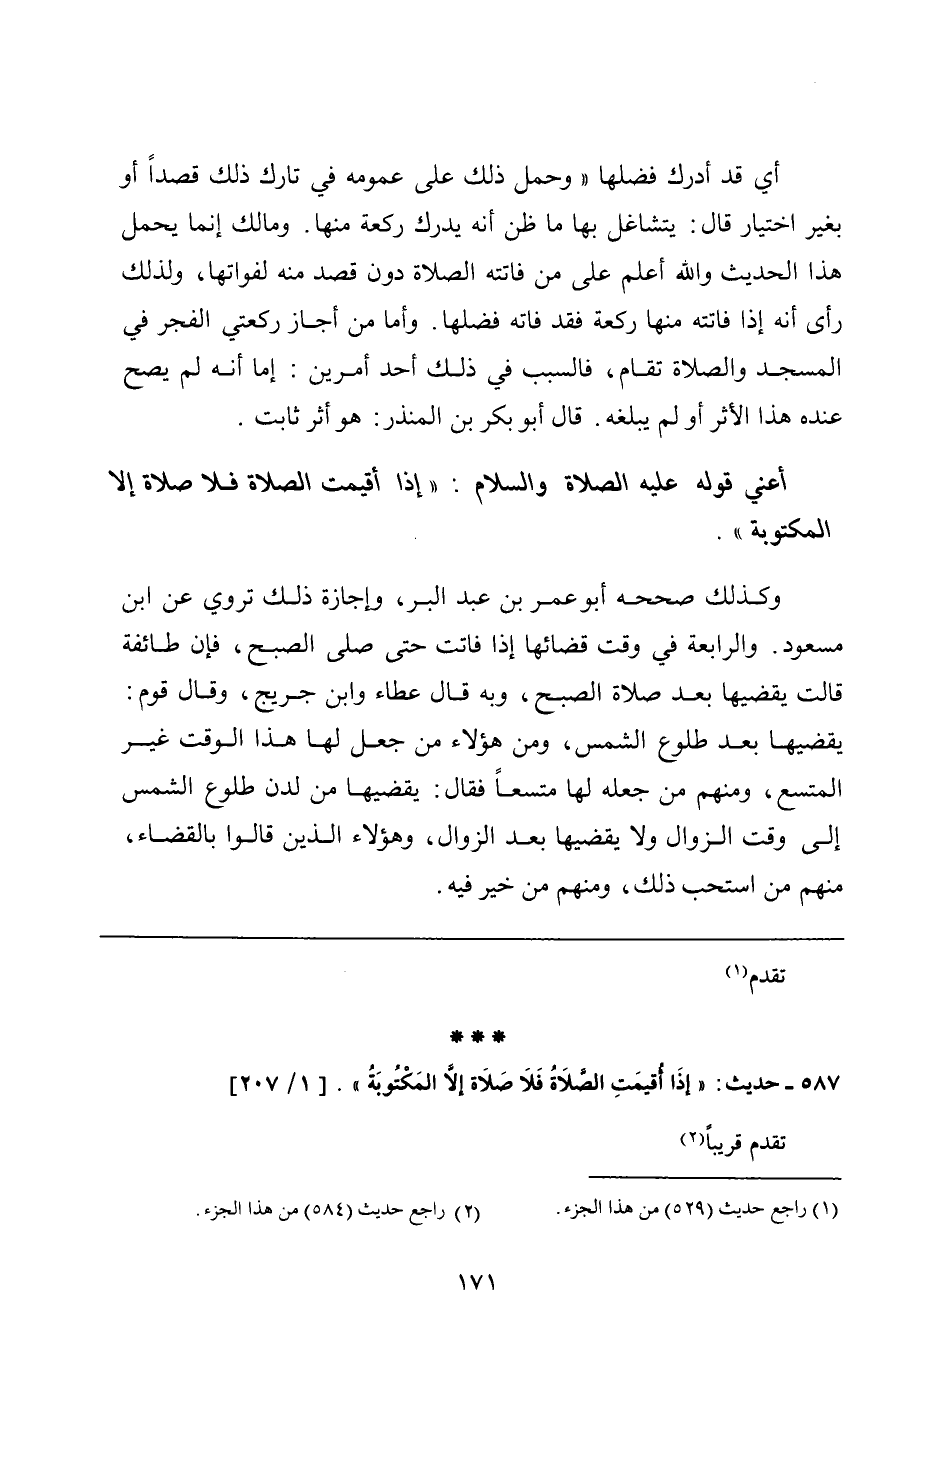 أي قد أدرك فضلها » وحمل ذلك على عمومه في تارك ذلك قصداً أو
بغير اختيار قال: يتشاغل بها ما ظن أنه يدرك ركعة منها. ومالك إنما يحمل
هذا الحديث والله أعلم على من فاتته الصلاة دون قصد منه لفواتها، ولذلك
رأى أنه إذا فاتته منها ركعة فقد فاته فضلها. وأما من أجاز ركعتي الفجر في
المسجد والصلاة تقام، فالسبب في ذلك أحد أمرين : إما أنه لم يصح
عنده هذا الأثر أو لم يبلغه. قال أبو بكر بن المنذر: هو أثر ثابت .
أعني قوله عليه الصلاة والسلام : « إذا أقيمت الصلاة فلا صلاة إلا
المكتوبة » .
وكذلك صححه أبو عمر بن عبد البر، وإجازة ذلك تروي عن ابن
مسعود. والرابعة في وقت قضائها إذا فاتت حتى صلى الصبح، فإن طائفة
قالت يقضيها بعد صلاة الصبح، وبه قال عطاء وابن جريج، وقال قوم:
يقضيها بعد طلوع الشمس، ومن هؤلاء من جعل لها هذا الوقت غير
المتسع، ومنهم من جعله لها متسعاً فقال: يقضيها من لدن طلوع الشمس
إلى وقت الزوال ولا يقضيها بعد الزوال، وهؤلاء الذين قالوا بالقضاء،
منهم من استحب ذلك، ومنهم من خير فيه.
تقدم(١)
***
٥٨٧ ـ حديث: « إذَا أُقيمَتِ الصَّلَاةُ فَلَا صَلَاة إلَّا المَكْتُوبَةُ » . [ ١/ ٢٠٧]
تقدم قريباً(٢)
(١) راجع حديث (٥٢٩) من هذا الجزء. (٢) راجع حديث (٥٨٤) من هذا الجزء.
١٧١